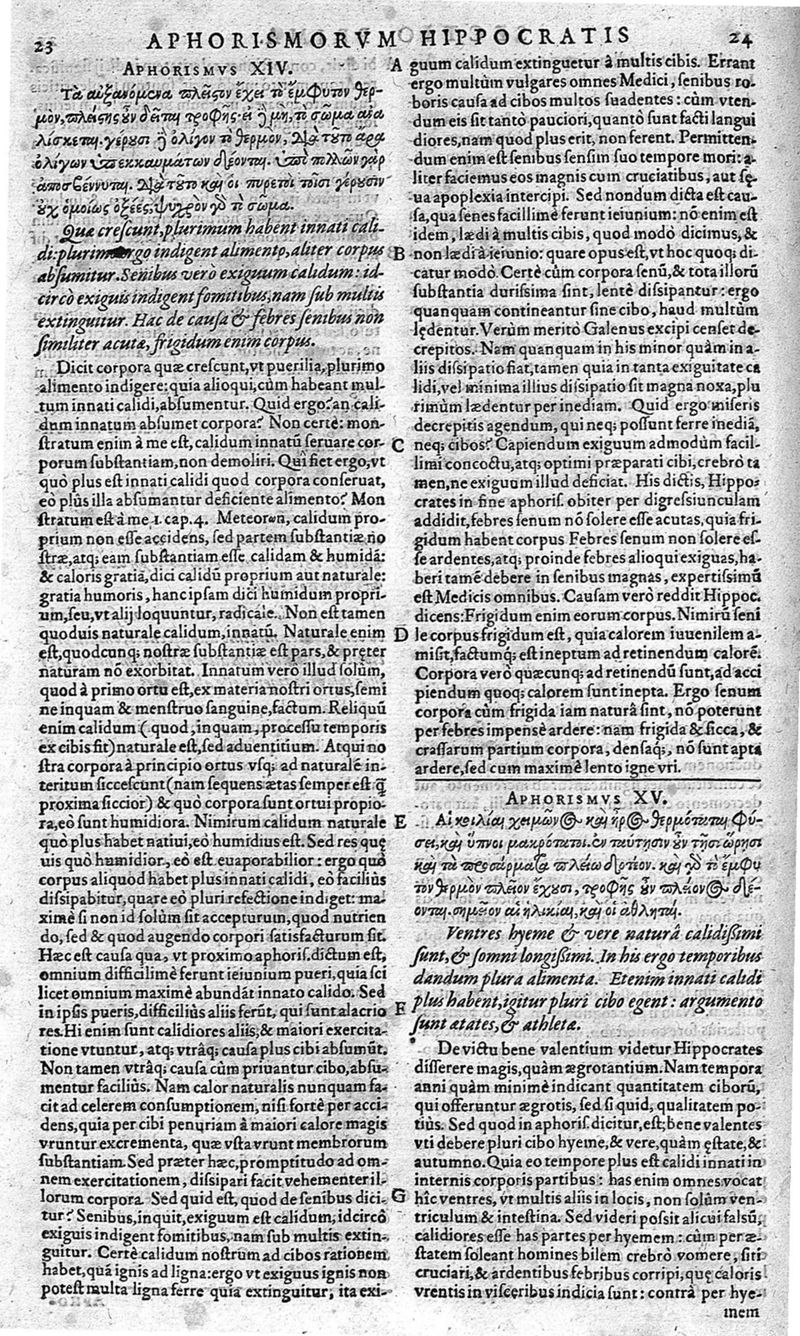 23 APHORISMORVM HIPPOCRATIS 24
APHORISMVS XIV.
Τὰ αὐξανόμενα πλεῖστον ἔχει τὸ ἔμφυτον θερ-
μὸν, πλείστης οὖν δεῖται τροφῆς· εἰ ἢ μὴ, τὸ σῶμα ἀνα
λίσκεται. γέρουσι ἢ ὀλίγον τὸ θερμὸν, διὰ τοῦτο ἄρα
ὀλίγων ὑπεκκαυμάτων δέονται. ὑπὸ πολλῶν γὰρ
ἀποσβέννυται. διὰ τοῦτο καὶ οἱ πυρετοὶ τοῖσι γέρουσιν
οὐχ ὁμοίως ὀξέες, ψυχρὸν γὸ τὸ σῶμα.
Quæ crescunt, plurimum habent innati cali-
di: plurimo ergo indigent alimento, aliter corpus
absumitur. Senibus verò exiguum calidum: id-
circò exiguis indigent fomitibus, nam sub multis
extinguitur. Hac de causa & febres senibus non
similiter acutæ, frigidum enim corpus.
Dicit corpora quæ crescunt, vt puerilia, plurimo
alimento indigere: quia alioqui, cùm habeant mul-
tum innati calidi, absumentur. Quid ergo? an cali-
dum innatum absumet corpora? Non certè: mon-
stratum enim à me est, calidum innatũ seruare cor-
porum substantiam, non demoliri. Quî fiet ergo, vt
quò plus est innati calidi quod corpora conseruat,
eò plùs illa absumantur deficiente alimento? Mon
stratum est à me, 1. cap. 4. Meteorωn, calidum pro-
prium non esse accidens, sed partem substantiæ no
stræ, atq; eam substantiam esse calidam & humidã:
& caloris gratiâ, dici calidũ proprium aut naturale:
gratia humoris, hanc ipsam dici humidum propri-
um, seu, vt alij loquuntur, radicale. Non est tamen
quoduis naturale calidum, innatũ. Naturale enim
est, quodcunq; nostræ substantiæ est pars, & pręter
naturam nõ exorbitat. Innatum verò illud solùm,
quod à primo ortu est, ex materia nostri ortus, semi
ne inquam & menstruo sanguine, factum. Reliquũ
enim calidum (quod, inquam, processu temporis
ex cibis fit) naturale est, sed aduentitium. Atqui no
stra corpora à principio ortus vsq; ad naturalẽ in-
teritum siccescunt (nam sequens ætas semper est q̃
proxima siccior) & quò corpora sunt ortui propio-
ra, eò sunt humidiora. Nimirum calidum naturale
quò plus habet natiui, eò humidius est. Sed res quę
uis quò humidior, eò est euaporabilior: ergo quò
corpus aliquod habet plus innati calidi, eò faciliùs
dissipabitur, quare eò pluri refectione indiget: ma-
ximè si non id solùm sit accepturum, quod nutrien
do, sed & quod augendo corpori satisfacturum sit.
Hæc est causa qua, vt proximo aphoris. dictum est,
omnium difficilimè ferunt ieiunium pueri, quia sci
licet omnium maximè abundãt innato calido. Sed
in ipsis pueris, difficiliùs aliis ferũt, qui sunt alacrio
res. Hi enim sunt calidiores aliis, & maiori exercita-
tione vtuntur, atq; vtrâq; causa plus cibi absumũt.
Non tamen vtrâq; causa cùm priuantur cibo, absu-
mentur faciliùs. Nam calor naturalis nunquam fa-
cit ad celerem consumptionem, nisi fortè per acci-
dens, quia per cibi penuriam à maiori calore magis
vruntur excrementa, quæ vsta vrunt membrorum
substantiam. Sed præter hæc, promptitudo ad om-
nem exercitationem, dissipari facit vehementer il-
lorum corpora. Sed quid est, quod de senibus dici-
tur? Senibus, inquit, exiguum est calidum, idcircò
exiguis indigent fomitibus, nam sub multis extin-
guitur. Certè calidum nostrum ad cibos rationem
habet, quã ignis ad ligna: ergo vt exiguus ignis non
potest multa ligna ferre quia extinguitur, ita exi-
A guum calidum extinguetur à multis cibis. Errant
ergo multùm vulgares omnes Medici, senibus ro-
boris causa ad cibos multos suadentes: cùm vten-
dum eis sit tantò pauciori, quantò sunt facti langui
diores, nam quod plus erit, non ferent. Permitten-
dum enim est senibus sensim suo tempore mori: a-
liter faciemus eos magnis cum cruciatibus, aut sę-
ua apoplexia intercipi. Sed nondum dicta est cau-
sa, qua senes facillimè ferunt ieiunium: nõ enim est
idem, lædi à multis cibis, quod modò dicimus, &
B non lædi à ieiunio: quare opus est, vt hoc quoq; di-
catur modò. Certè cùm corpora senũ, & tota illorũ
substantia durissima sint, lentè dissipantur: ergo
quanquam contineantur sine cibo, haud multùm
lędentur. Verùm meritò Galenus excipi censet de-
crepitos. Nam quanquam in his minor quàm in a-
liis dissipatio fiat, tamen quia in tanta exiguitate ca
lidi, vel minima illius dissipatio sit magna noxa, plu
rimùm lædentur per inediam. Quid ergo miseris
decrepitis agendum, qui neq; possunt ferre inediã,
C neq; cibos? Capiendum exiguum admodùm facil-
limi concoctu, atq; optimi præparati cibi, crebrò ta
men, ne exiguum illud deficiat. His dictis, Hippo-
crates in fine aphoris. obiter per digressiunculam
addidit, febres senum nõ solere esse acutas, quia fri-
gidum habent corpus Febres senum non solere es-
se ardentes, atq; proinde febres alioqui exiguas, ha-
beri tamẽ debere in senibus magnas, expertissimũ
est Medicis omnibus. Causam verò reddit Hippoc.
dicens: Frigidum enim eorum corpus. Nimirũ seni
D le corpus frigidum est, quia calorem iuuenilem a-
misit, factumq; est ineptum ad retinendum calorẽ.
Corpora verò quæcunq; ad retinendũ sunt, ad acci
piendum quoq; calorem sunt inepta. Ergo senum
corpora cùm frigida iam naturâ sint, nõ poterunt
per febres impensè ardere: nam frigida & sicca, &
crassarum partium corpora, densaq;, nõ sunt apta
ardere, sed cum maximè lento igne vri.
APHORISMVS XV.
E Αἱ κοιλίαι χειμῶνος καὶ ἦρος θερμόταται φύ-
σει, καὶ ὕπνοι μακρότατοι. ἐν ταύτησιν οὖν τῇσι ὥρησι
καὶ τὰ προσάρματα πλείω δοτέον. καὶ γὸ τὸ ἔμφυ
τον θερμὸν πλεῖον ἔχουσι, τροφῆς οὖν πλείονος δέ-
ονται. σημεῖον αἱ ἡλικίαι, καὶ οἱ ἀθληταί.
Ventres hyeme & vere naturâ calidissimi
sunt, & somni longissimi. In his ergo temporibus
dandum plura alimenta. Etenim innati calidi
plus habent, igitur pluri cibo egent: argumento
F sunt ætates, & athletæ.
De victu bene valentium videtur Hippocrates
disserere magis, quàm ægrotantium. Nam tempora
anni quàm minimè indicant quantitatem ciborũ,
qui offeruntur ægrotis, sed si quid, qualitatem po-
tiùs. Sed quod in aphoris. dicitur, est; bene valentes
vti debere pluri cibo hyeme, & vere, quàm ęstate, &
autumno. Quia eo tempore plus est calidi innati in
internis corporis partibus: has enim omnes vocat
G hîc ventres, vt multis aliis in locis, non solùm ven-
triculum & intestina. Sed videri possit alicui falsũ,
calidiores esse has partes per hyemem: cùm per æ-
statem soleant homines bilem crebrò vomere, siti
cruciari, & ardentibus febribus corripi, quę caloris
vrentis in visceribus indicia sunt: contrà per hye-
mem